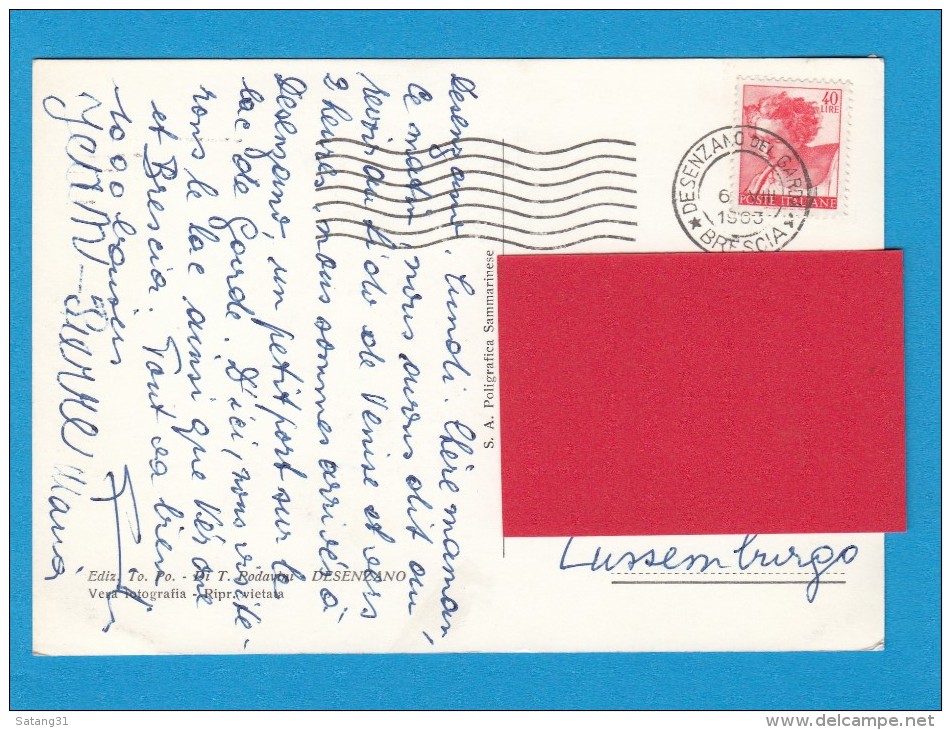 Desenzano, Lundi. Chère maman,
Ce matin, nous avons dit au
revoir au Lido de Venise et vers
2 heures, nous sommes arrivés à
Desenzano, un petit port sur le
lac de Garde. D'ici, nous visite-
rons le lac ainsi que Vérone
et Brescia. Tout va bien
1000 baisers
Jean-Pierre Maria
40
LIRE
POSTE ITALIANE
DESENZANO DEL GARDA
1963
BRESCIA
S. A. Poligrafica Sammarinese
Lussemburgo
Ediz. To. Po. - Di T. Rodavini - DESENZANO
Vera fotografia - Ripr. vietata
Satang31
www.delcampe.net